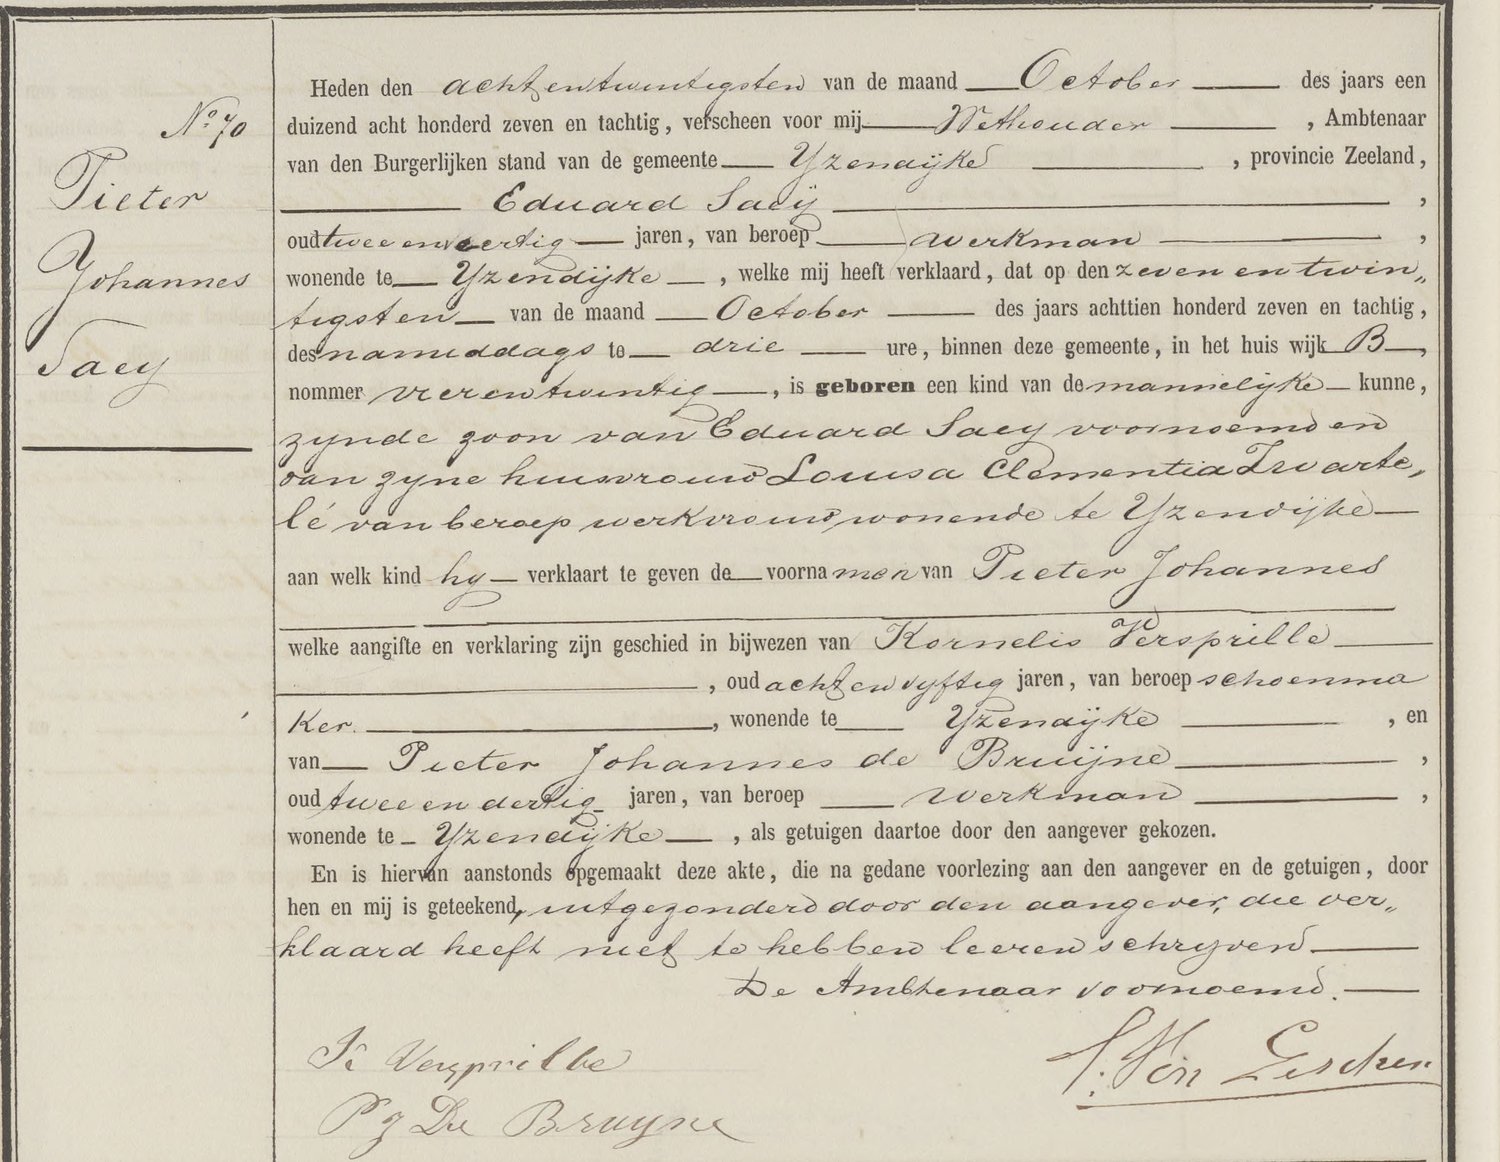 No. 70
Pieter
Johannes
Saey
Heden den achtentwintigsten van de maand October des jaars een
duizend acht honderd zeven en tachtig, verscheen voor mij Wethouder, Ambtenaar
van den Burgerlijken stand van de gemeente Yzendijke, provincie Zeeland,
Eduard Saeÿ,
oud twee en veertig jaren, van beroep werkman,
wonende te Yzendijke, welke mij heeft verklaard, dat op den zeven en twin„
tigsten van de maand October des jaars achttien honderd zeven en tachtig,
des namiddags te drie ure, binnen deze gemeente, in het huis wijk B,
nommer vierentwintig, is geboren een kind van de mannelijke kunne,
zynde zoon van Eduard Saey voornoemd en
van zyne huisvrouw Louisa Clementia Zwarte„
lé van beroep werkvrouw wonende te Yzendijke
aan welk kind hy verklaart te geven de voornamen van Pieter Johannes
welke aangifte en verklaring zijn geschied in bijwezen van Kornelis Versprille
, oud achtenvyftig jaren, van beroep schoenma
ker., wonende te Yzendijke, en
van Pieter Johannes de Bruijne,
oud twee en dertig jaren, van beroep werkman,
wonende te Yzendijke, als getuigen daartoe door den aangever gekozen.
En is hiervan aanstonds opgemaakt deze akte, die na gedane voorlezing aan den aangever en de getuigen, door
hen en mij is geteekend, uitgezonderd door den aangever, die ver„
klaard heeft niet te hebben leeren schryven
De Ambtenaar voornoemd.
K Versprille
P J De Bruyne